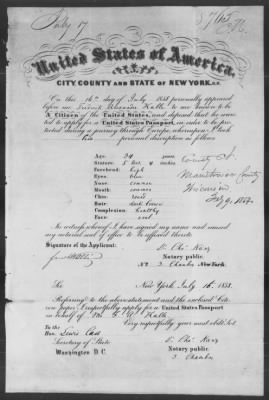 July 17
United States of America.
CITY COUNTY AND STATE OF NEW YORK, S.S.
On this 16th day of July 1858 personally appeared
before me Kalb to me known to be
A Citizen of the United States, and deposed that he was
about to apply for a United States Passport, in order to be pro-
tected during a journey through Europe, whereupon I took
his personal description as follows
Age: 34 years
Stature: 5 feet 4 inches
Forehead: high
Eyes: blue
Nose: common
Mouth: common
Chin: round
Hair: dark brown
Complexion: healthy
Face: oval
County Ct.
Manitowoc County
Wisconsin
In witness whereof I have signed my name and caused
my notarial seal of office to be affixed thereto
Signature of the Applicant:
Notary public.
No. 3 Chambers New York.
New York July 16. 1858.
Sir
Referring to the above statement and the enclosed Citi-
zen paper I respectfully apply for a United States Passport
in behalf of Mr. Kalb
Very respectfully your most obdt. Svt.
To
Hon. Lewis Cass
Secretary of State
Washington D.C.
Notary public
3. Chambers